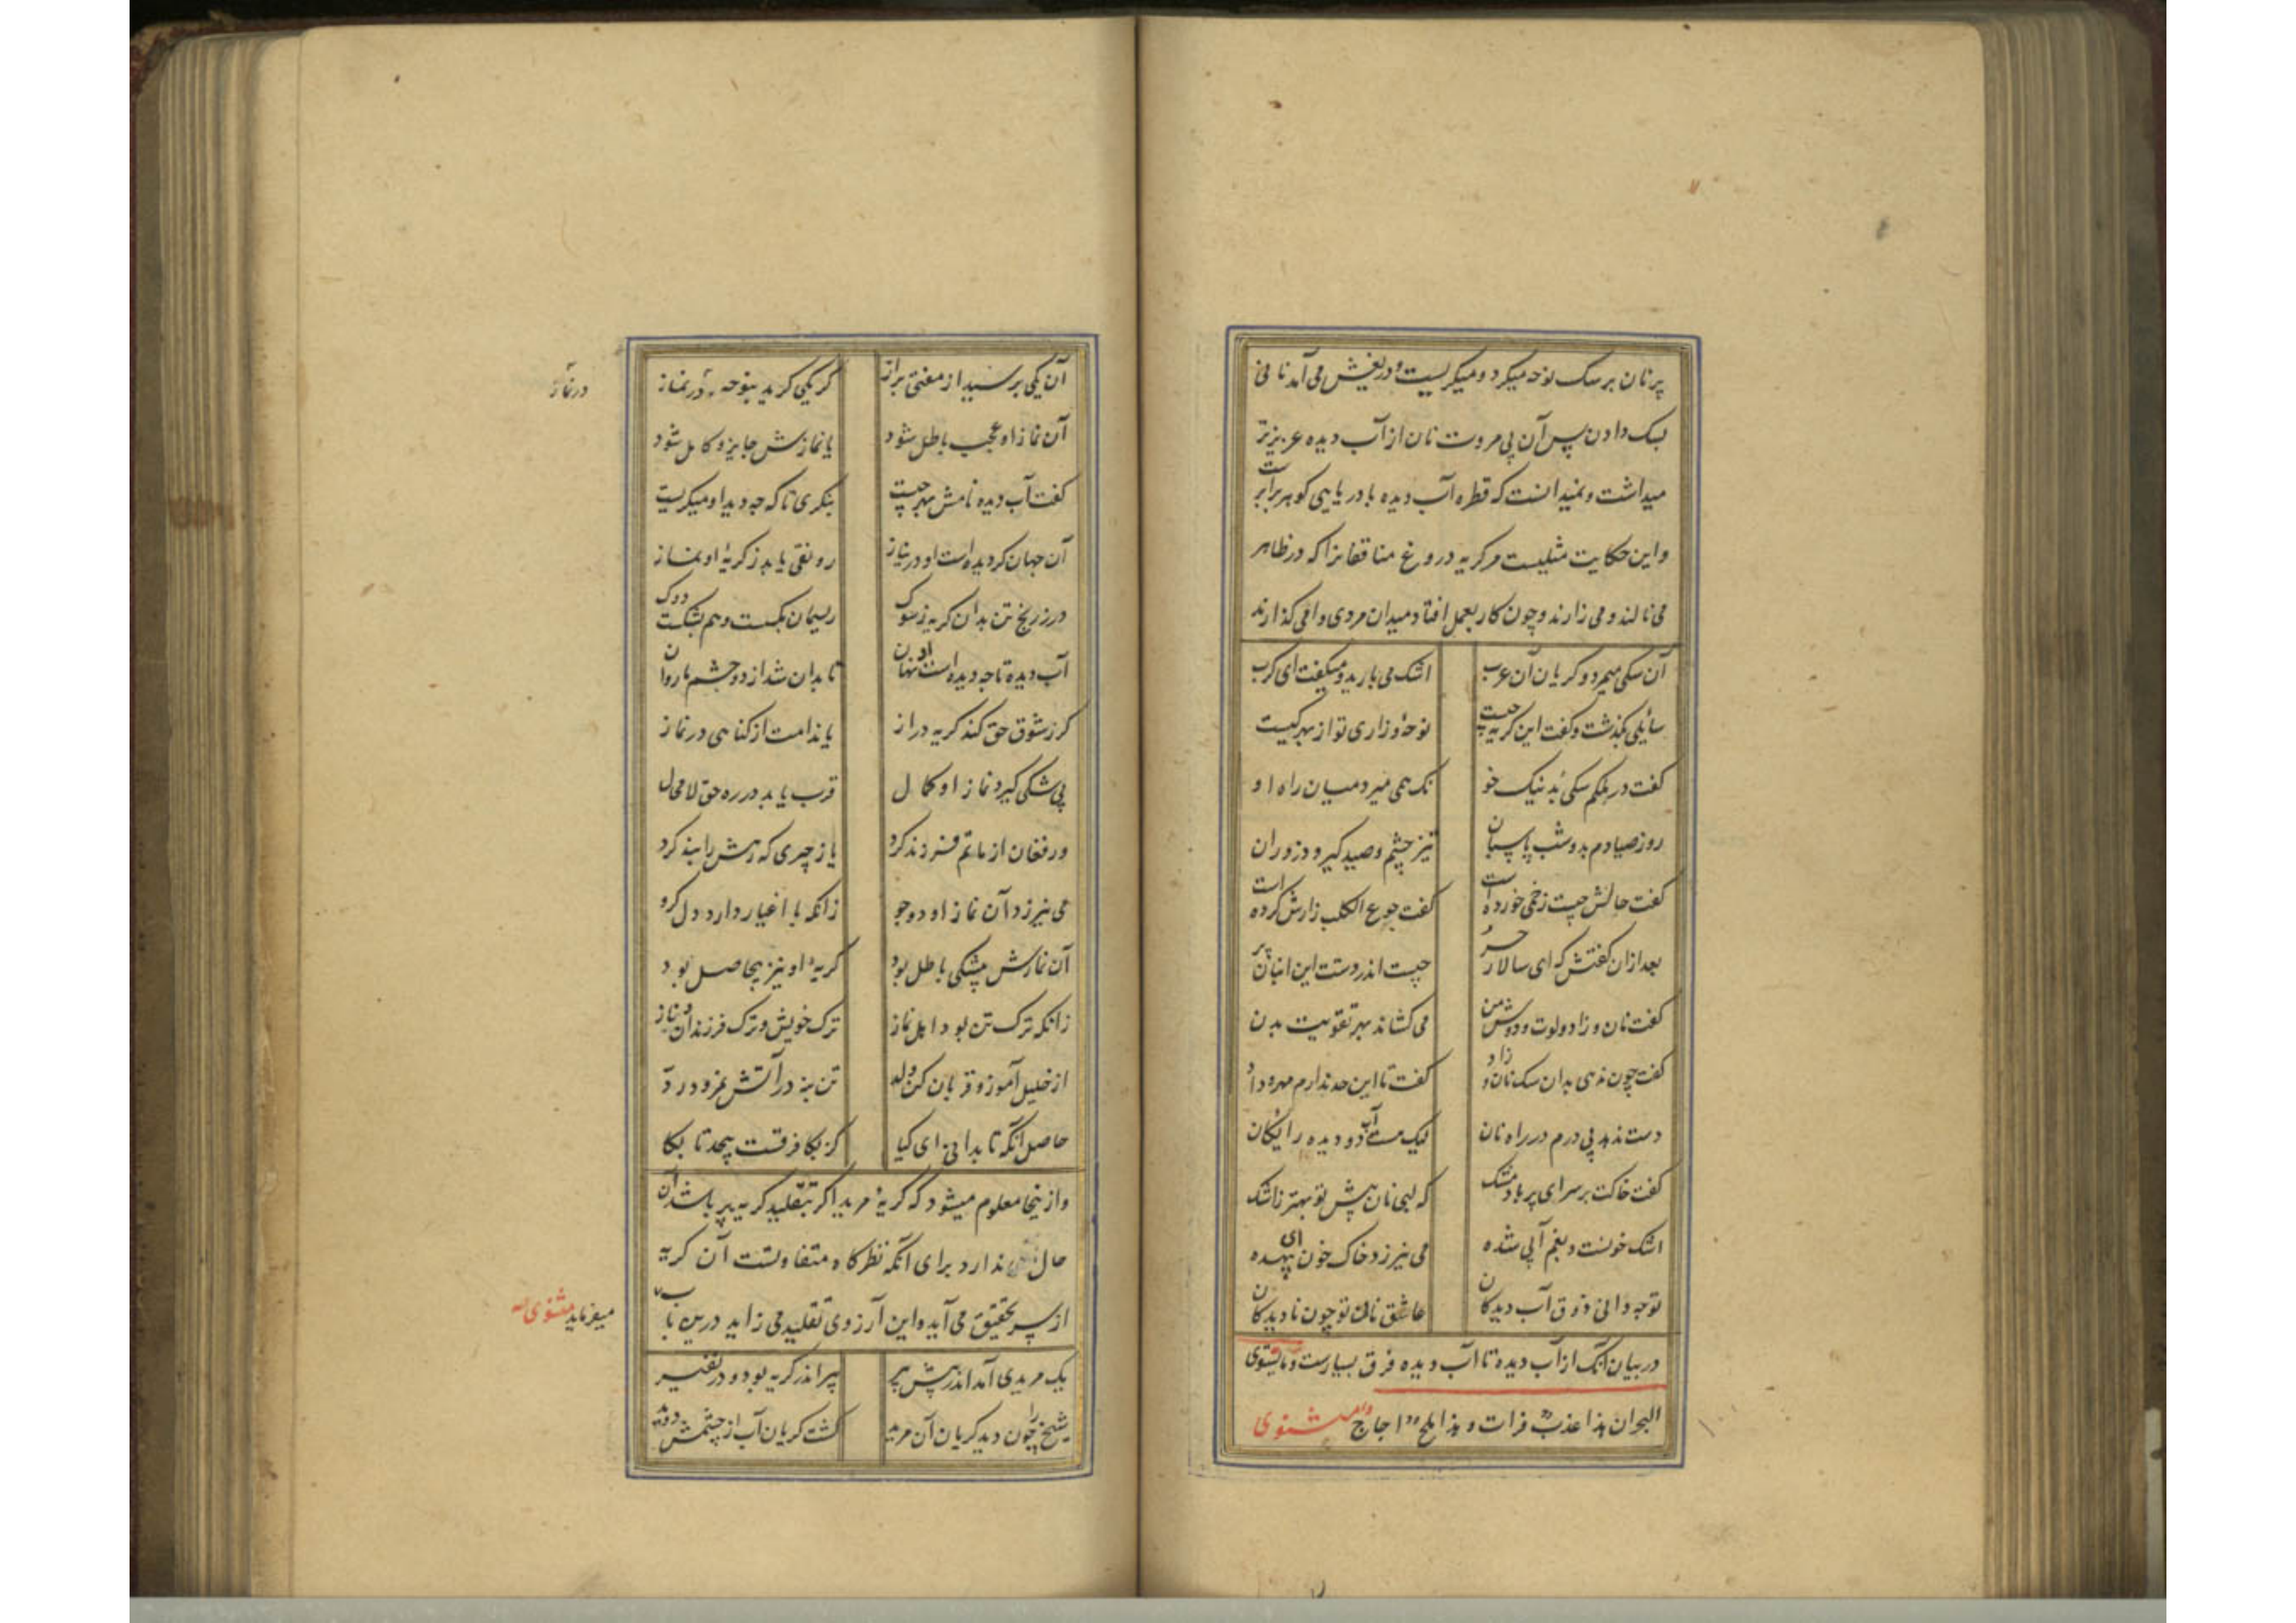 پرنان بر سک نوحه میکرد و میکریست و دریغش می آمد نانی
بسک دادن پس آن بی مروت نان از آب دیده عزیزتر
میداشت و نمیدانست که قطره آب دیده با دریایی کوهر برابر است
و این حکایت مثلیست مر کریه دروغ منافقانرا که در ظاهر
می نالند و می زارند و چون کار بعمل افتاد میدان مردی وا می کذارند
آن سکی میمرد و کریان آن عرب اشک می بارید و میکفت ای کرب
سائلی بکذشت و کفت این کریه چیست نوحه و زاری تو از بهر کیست
کفت در ملکم سکی بد نیک خو نک همی میرد میان راه او
روز صیادم بد و شب پاسبان تیز چشم و صید کیر و دزد ران
کفت حالش چیست زخمی خورده است کفت جوع الکلب زارش کرده است
بعد ازان کفتش که ای سالار حر چیست اندر دستت این انبان پر
کفت نان و زاد و لوت دوش من می کشاند بهر تقویت بدن
کفت چون ندهی بدان سک نان و زاد کفت تا این حد ندارم مهر و داد
دست ندهد بی درم در راه نان لیک هست آب دو دیده رایکان
کفت خاکت بر سر ای پر باد مشک که لبی نان پیش تو بهتر ز اشک
اشک خونست و بغم آبی شده می نیرزد خاک خون بیهده ای
تو چه دانی ذوق آب دیدکان عاشق نان تو چون نادیدکان
در بیان آنک از آب دیده تا آب دیده فرق بسیارست و ما یستوی
البحران هذا عذب فرات و هذا ملح اجاج مثنوی
آن یکی پرسید از مفتی براز کر یکی کرید بنوحه در نماز
در نماز
آن نماز او عجب باطل شود یا نمازش جایز و کامل شود
کفت آب دیده نامش بهر چیست بنکری تا که چه دید او میکریست
آن جهان کر دیده است او در نیاز رونقی یابد ز کریۀ او نماز
ور ز رنج تن بد آن کریه ز سوک ریسمان بکسست و هم بشکست دوک
آب دیده تا چه دیده است او نهان تا بدان شد از دو چشمها روان
کر ز شوق حق کند کریه دراز یا ندامت از کناهی در نماز
بی شکی کیرد نماز او کمال قرب یابد در ره حق لا محال
ور فغان از ماتم فرزند کرد یا ز چیزی که رهش را بند کرد
می نیرزد آن نماز او دو جو زانکه با اغیار دارد دل کرو
آن نمازش بیشکی باطل بود کریۀ او نیز بیحاصل بود
زانکه ترک تن بود اصل نماز ترک خویش و ترک فرزندان و ناز
از خلیل آموز و قربان کن ولد تن بنه در آتش نمرود رد
حاصل آنکه تا بدانی ای کیا کز بکا فرقست بیحد تا بکا
و ازینجا معلوم میشود که کریۀ مرید اکر بتقلید کریه پیر باشد آن
حال ندارد برای آنکه نظرکاه متفاوتست آن کریه
از سر تحقیق می آید و این آرزوی تقلید می زاید درین باب
میفرماید مثنوی
یک مریدی آمد اندر پیش پیر پیر اندر کریه بود و در نفیر
شیخ را چون دید کریان آن مرید کشت کریان آب از چشمش دوید